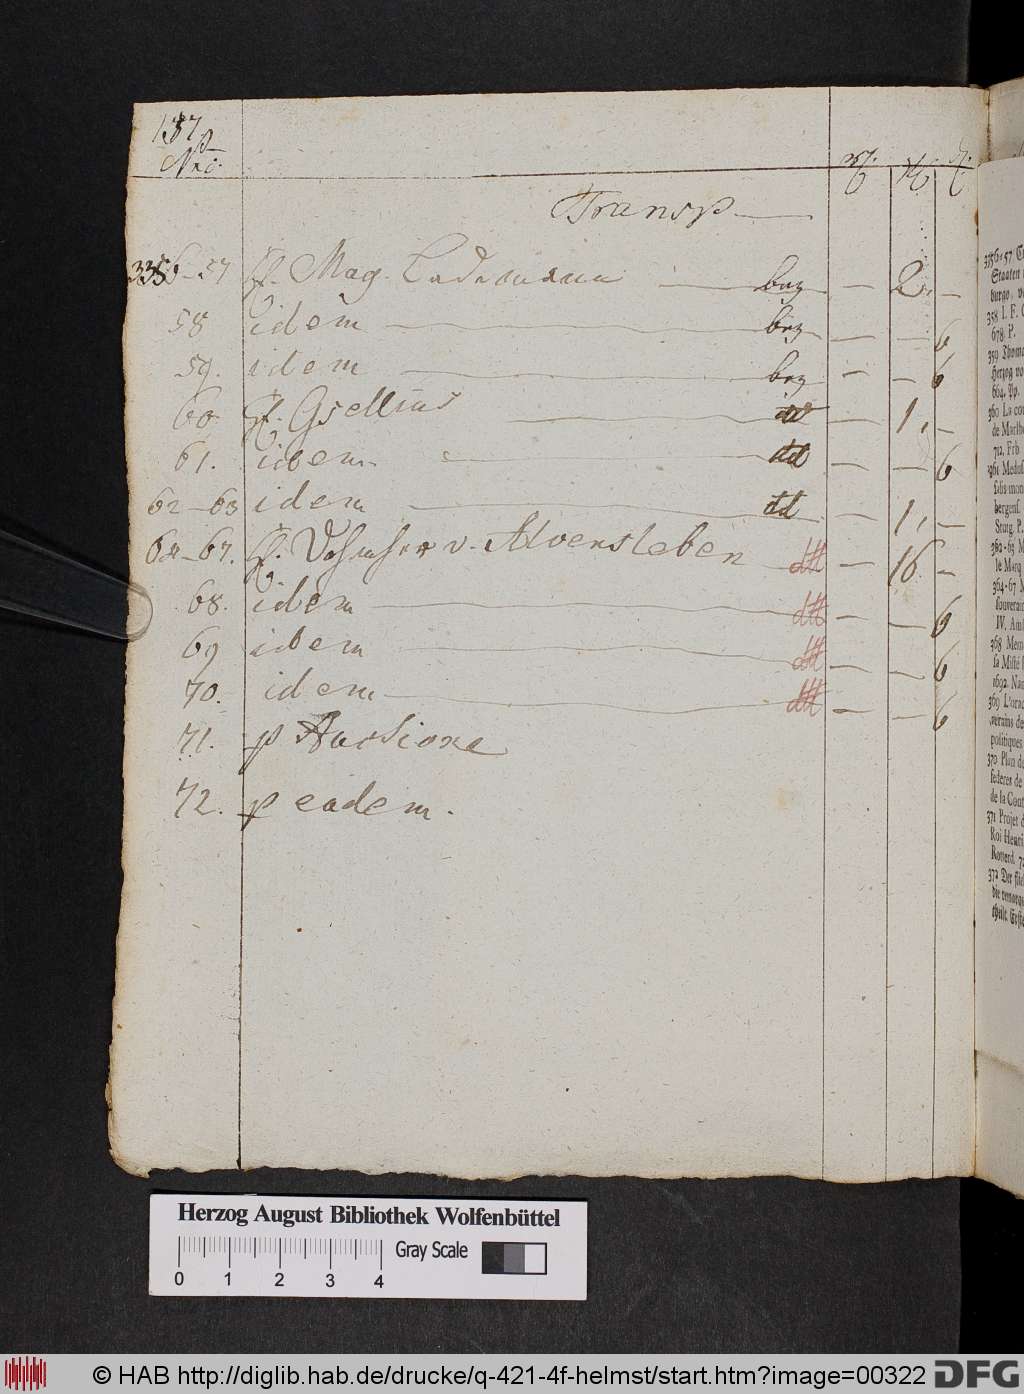 137
Nro.
Transp
3356-57 H. Mag. Lademann bez - 2, -
58 idem bez - - 6
59. idem bez - - 6
60 H. Gsellius dd - 1, -
61. idem dd - - 6
62-63 idem dd - 1, -
64-67. H. v. Alvensleben dtt - 16 -
68. idem dtt - - 6
69 idem dtt - - 6
70. idem dtt - - 6
71. p Auctione
72. p eadem.
Staaten
burgo, v
358 I. F.
678. P.
359 Thoma
Herzog vo
664. Pp.
360 La co
de Marlb
712. Frb
361 Medul
bergens.
Stutg. P.
362-63 M
le Marq
364-67 M
souverai
IV. Am
368 Mem
1692. Nan
369 L'orac
verains de
politiques
370 Plan d
federes de
de la Cout
371 Projet d
Roi Henri
Rotterd. 7
372 Der
Herzog August Bibliothek Wolfenbüttel
Gray Scale
0 1 2 3 4
© HAB http://diglib.hab.de/drucke/q-421-4f-helmst/start.htm?image=00322
DFG